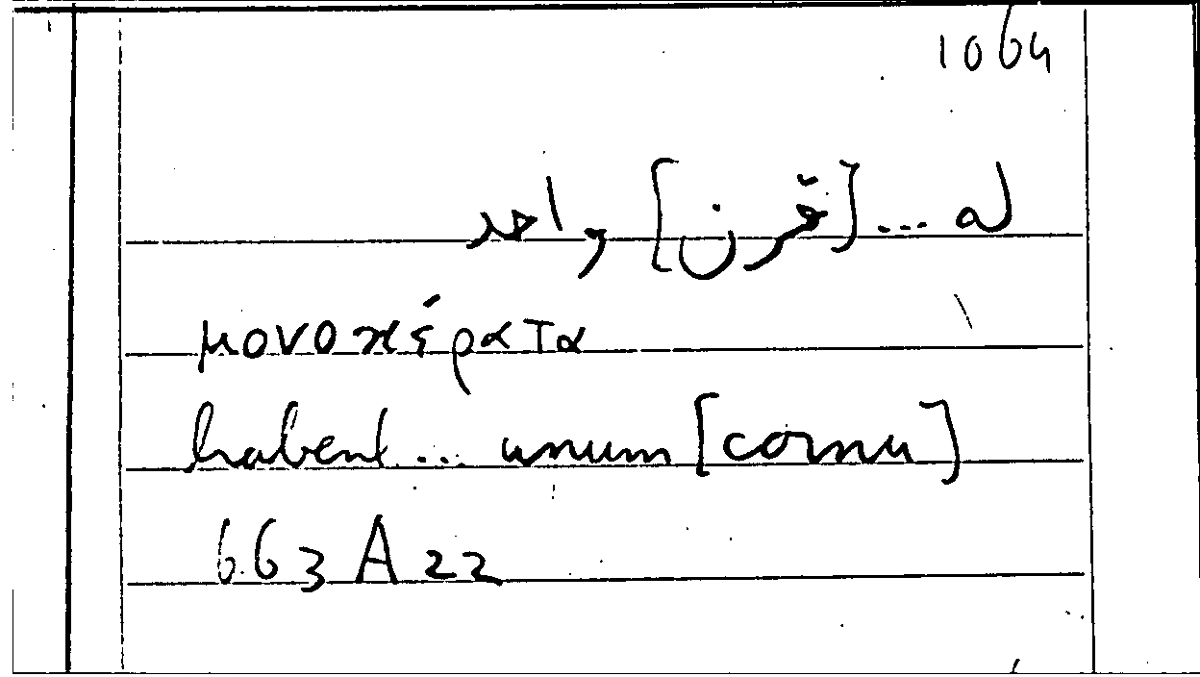 1064
له ... [قرن] واحد
μονοκέρατα
habent ... unum [cornu]
663 A 22